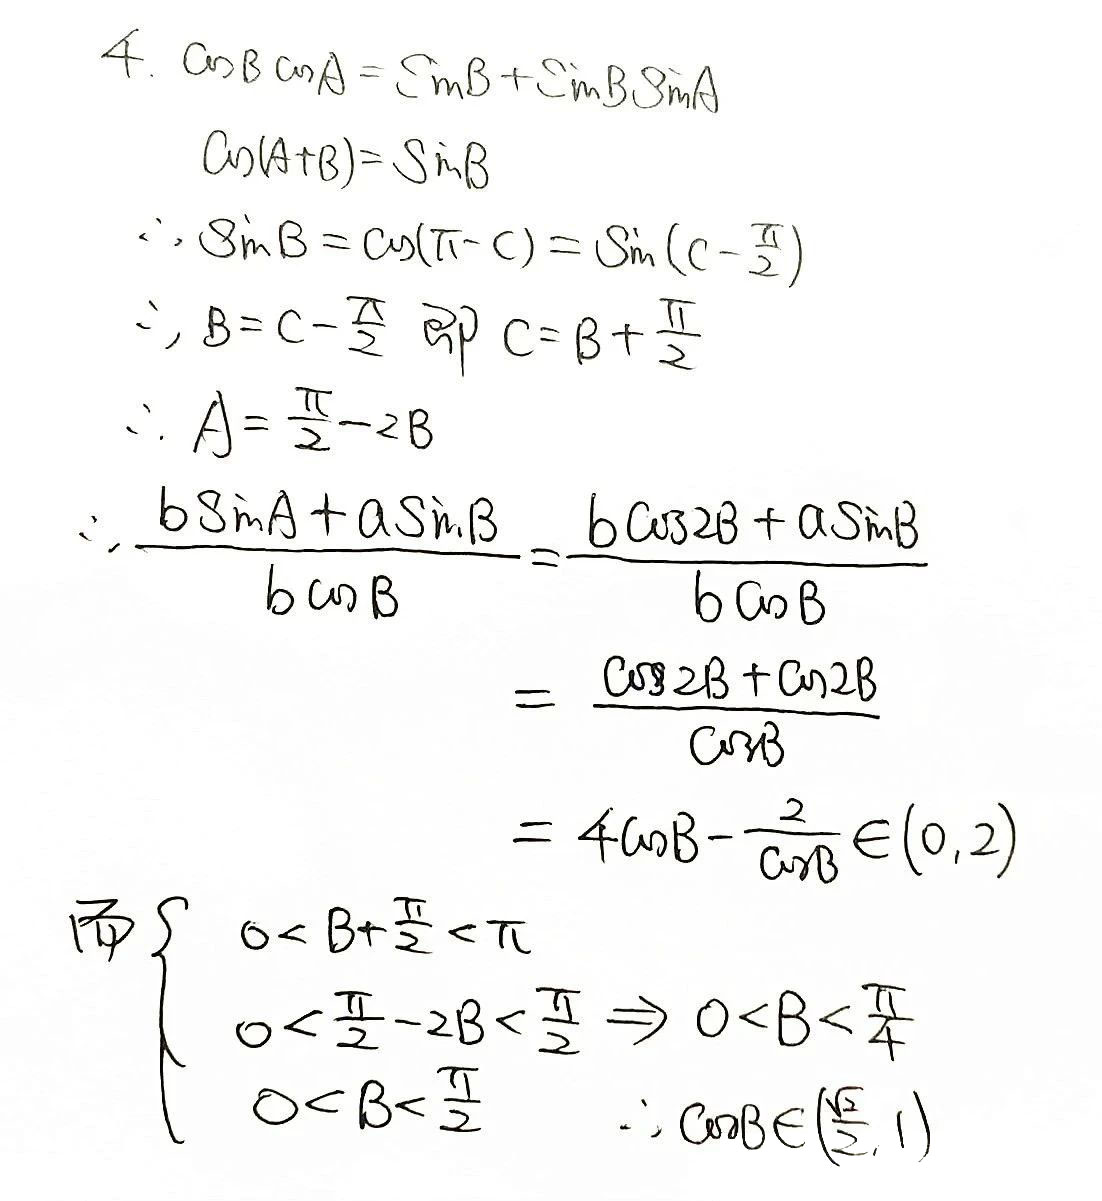 4. cosB cosA = sinB + sinB sinA
cos(A+B) = sinB
∴ sinB = cos(π-C) = sin(C-π/2)
∴ B = C - π/2 即 C = B + π/2
∴ A = π/2 - 2B
∴ (b sinA + a sinB)/(b cosB) = (b cos2B + a sinB)/(b cosB)
= (cos2B + cos2B)/(cosB)
= 4cosB - 2/cosB ∈ (0,2)
而 { 0 < B + π/2 < π
0 < π/2 - 2B < π/2 ⇒ 0 < B < π/4
0 < B < π/2 ∴ cosB ∈ (√2/2, 1)